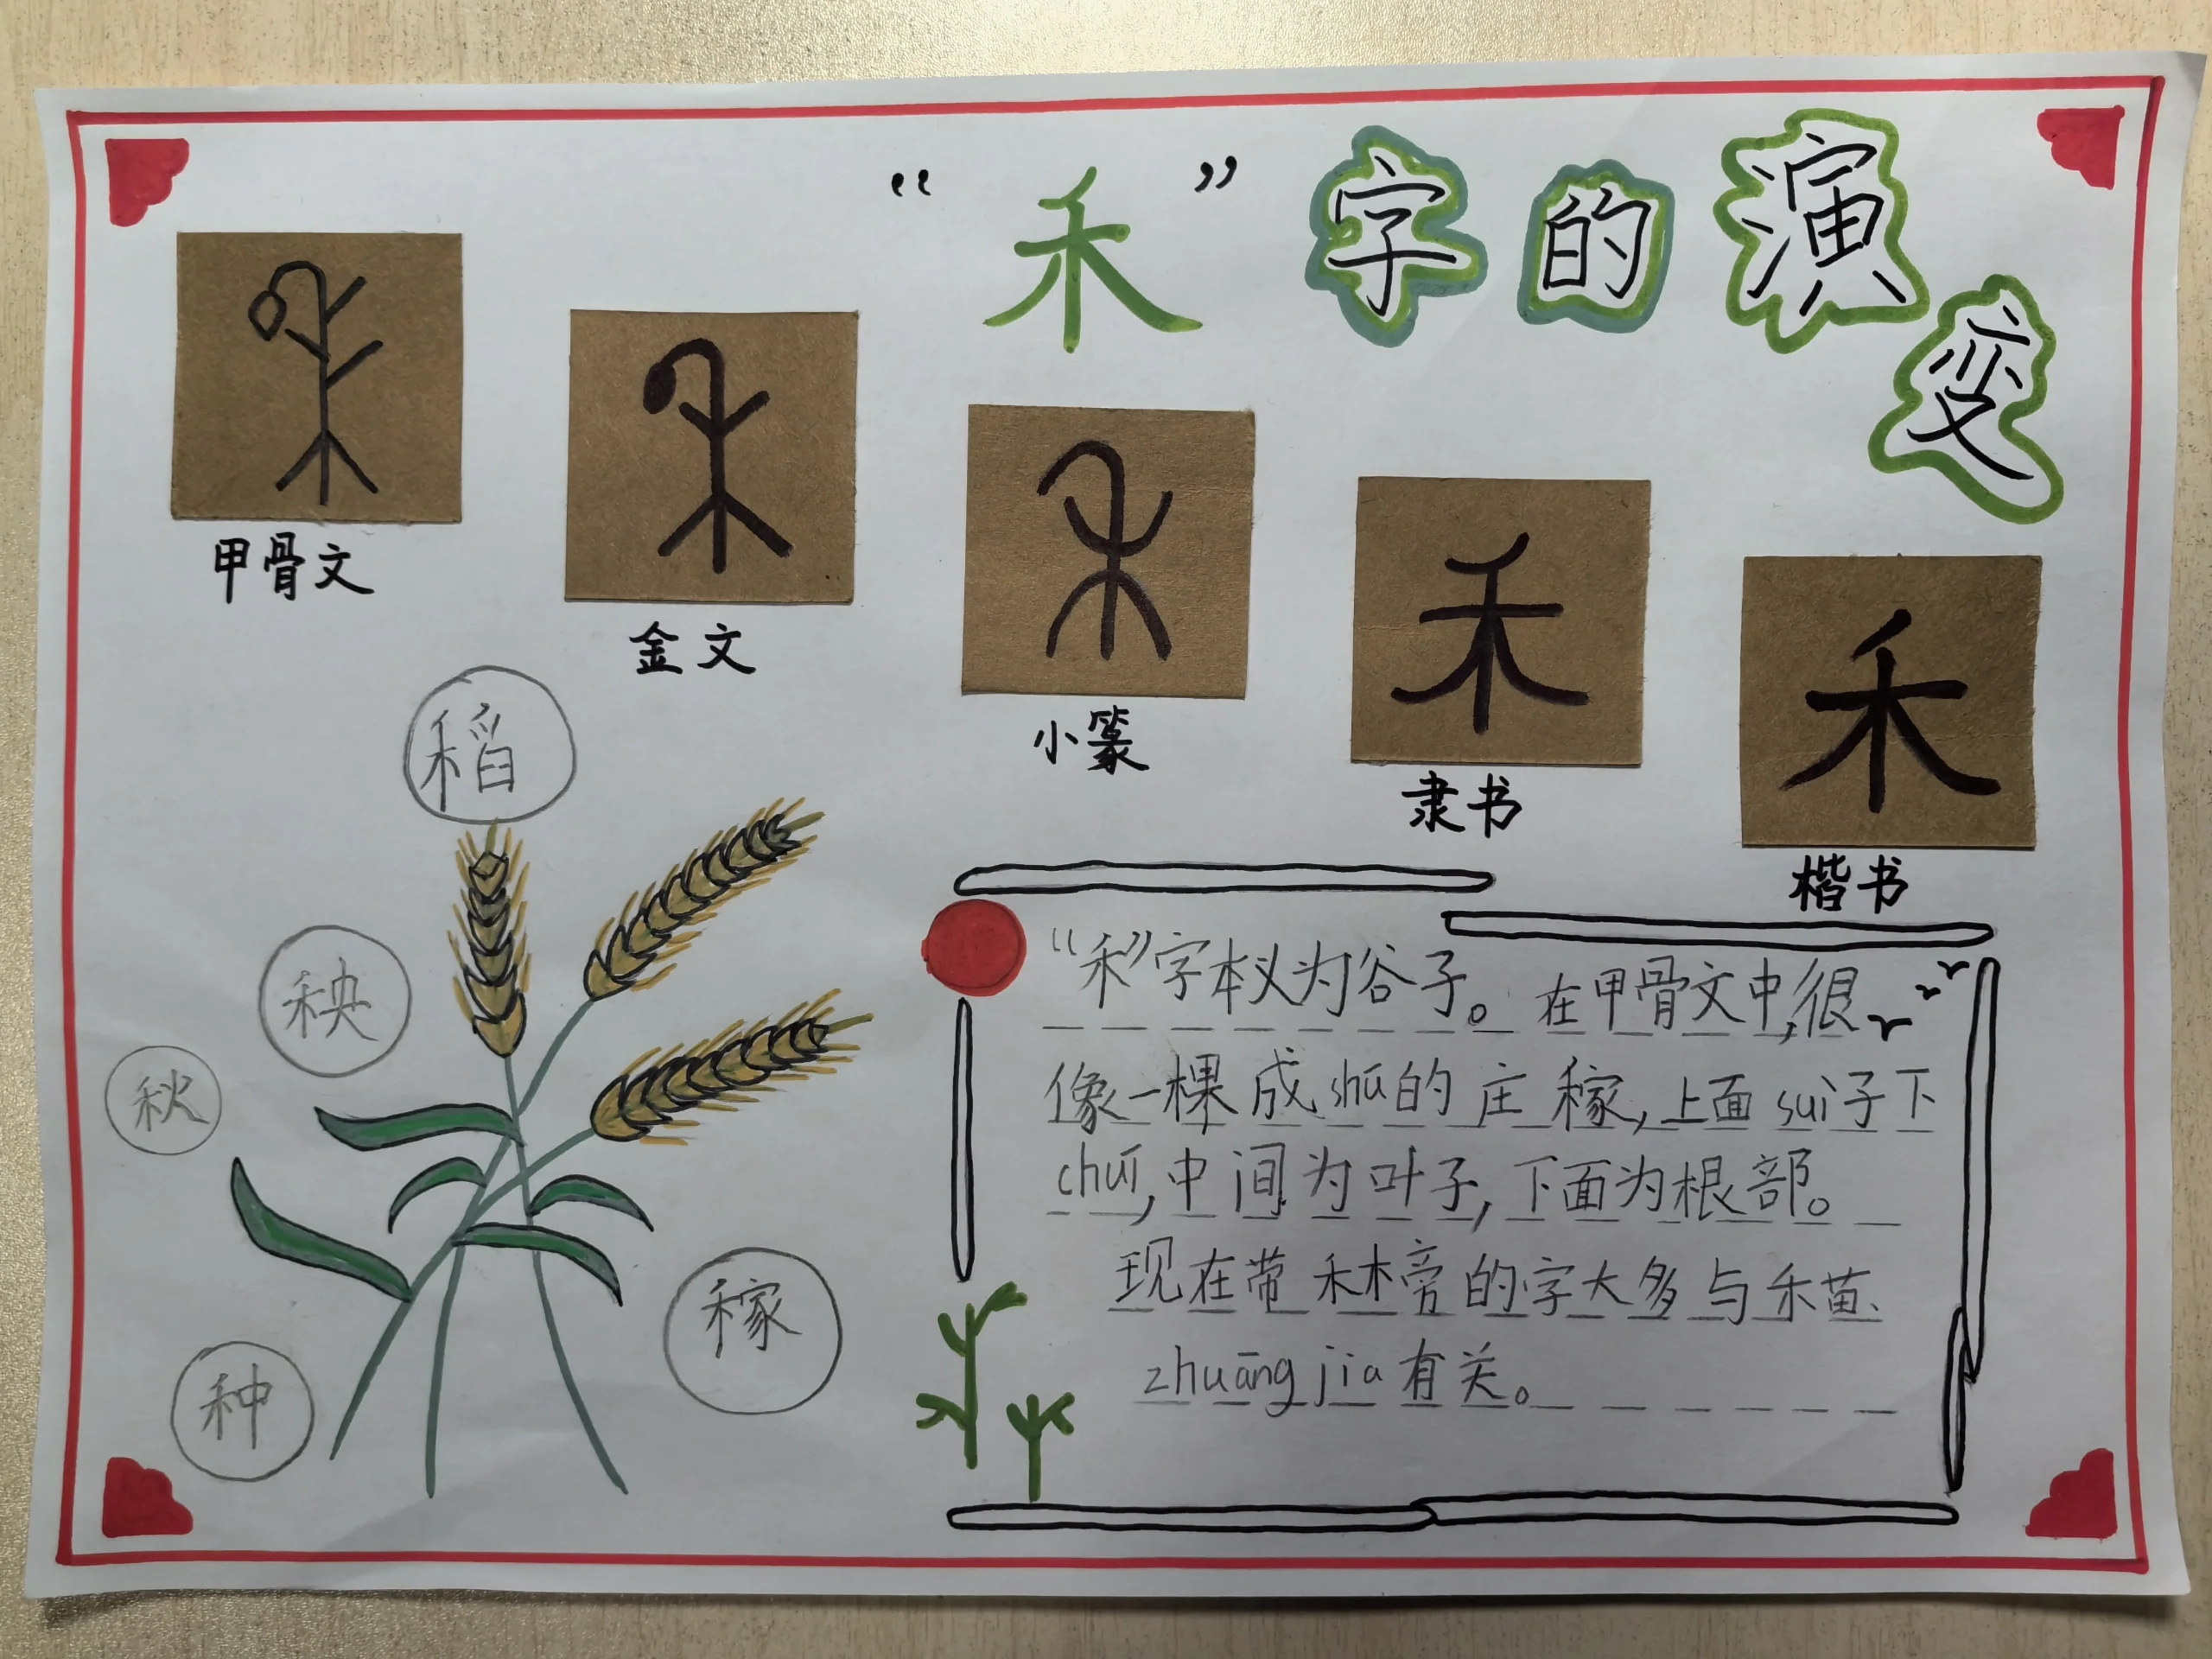 “禾”字的演变
甲骨文
金文
小篆
隶书
楷书
禾
禾
稻
秧
秋
种
稼
“禾”字本义为谷子。在甲骨文中,很
像一棵成shú的庄稼,上面suì子下
chuí,中间为叶子,下面为根部。
现在带禾木旁的字大多与禾苗、
zhuāng jia有关。